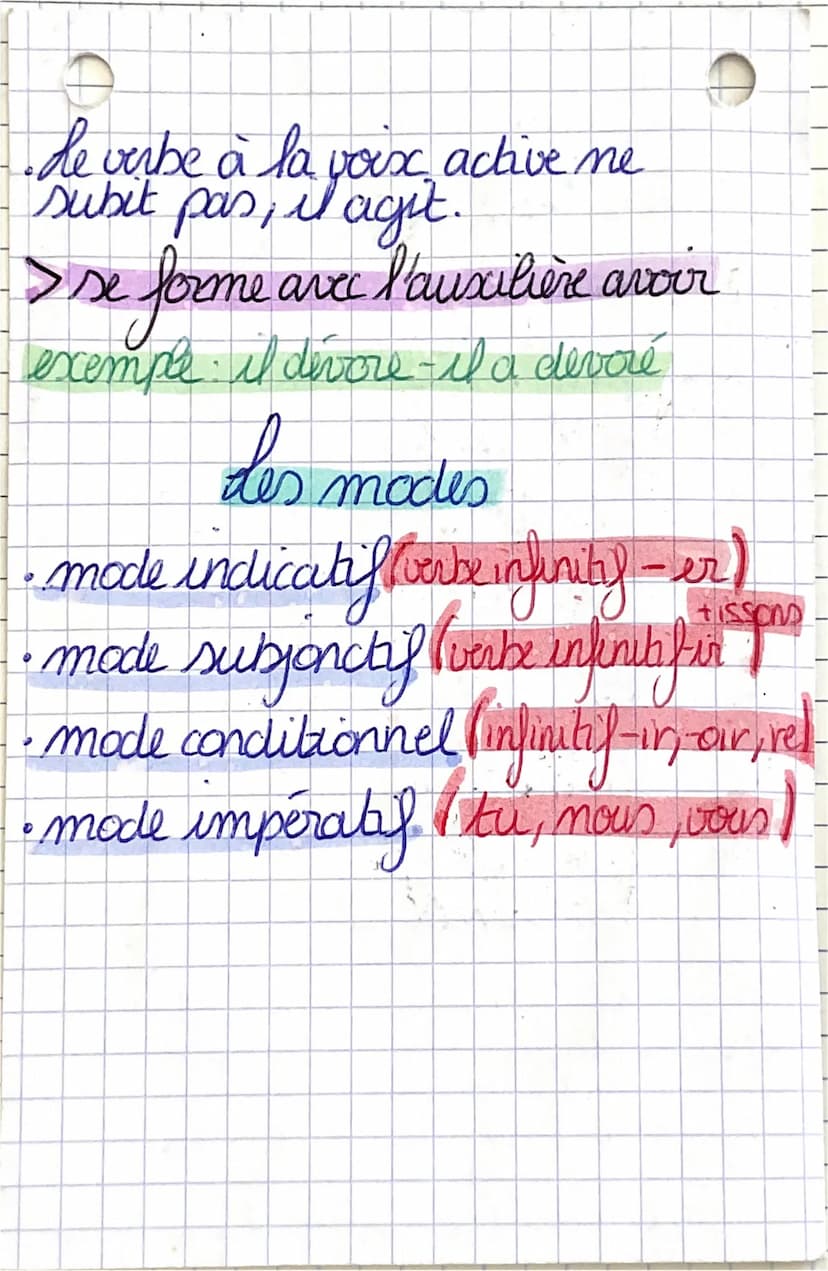 . Le verbe à la voix active ne
subit pas, il agit.
> se forme avec l'auxilière avoir
exemple : il dévore - il a devoré
Les modes
. mode indicatif (verbe infinitif - er)
+ issons
. mode subjonctif (verbe infinitif-ir )
. mode conditionnel (infinitif-ir,-oir,re)
. mode impératif ( tu, nous, vous )